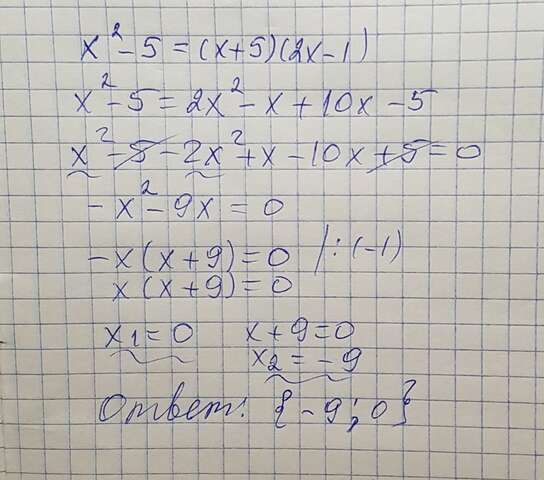 x² - 5 = (x+5)(2x-1)
x² - 5 = 2x² - x + 10x - 5
x² - 5 - 2x² + x - 10x + 5 = 0
- x² - 9x = 0
- x (x + 9) = 0 /: (-1)
x (x + 9) = 0
x1 = 0 x + 9 = 0
x2 = - 9
Ответ: {-9; 0}